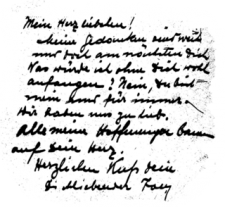 Mein Herzliebchen!
Meine Gedanken sind weit
und doch am nächsten Dich
Was würde ich ohne Dich wohl
anfangen? Nein, Du bist
mein und für immer.
Wir haben uns zu lieb.
Alle meine Hoffnungen bauen
auf Dein Herz.
Herzlichen Kuss Dein
Dich liebender